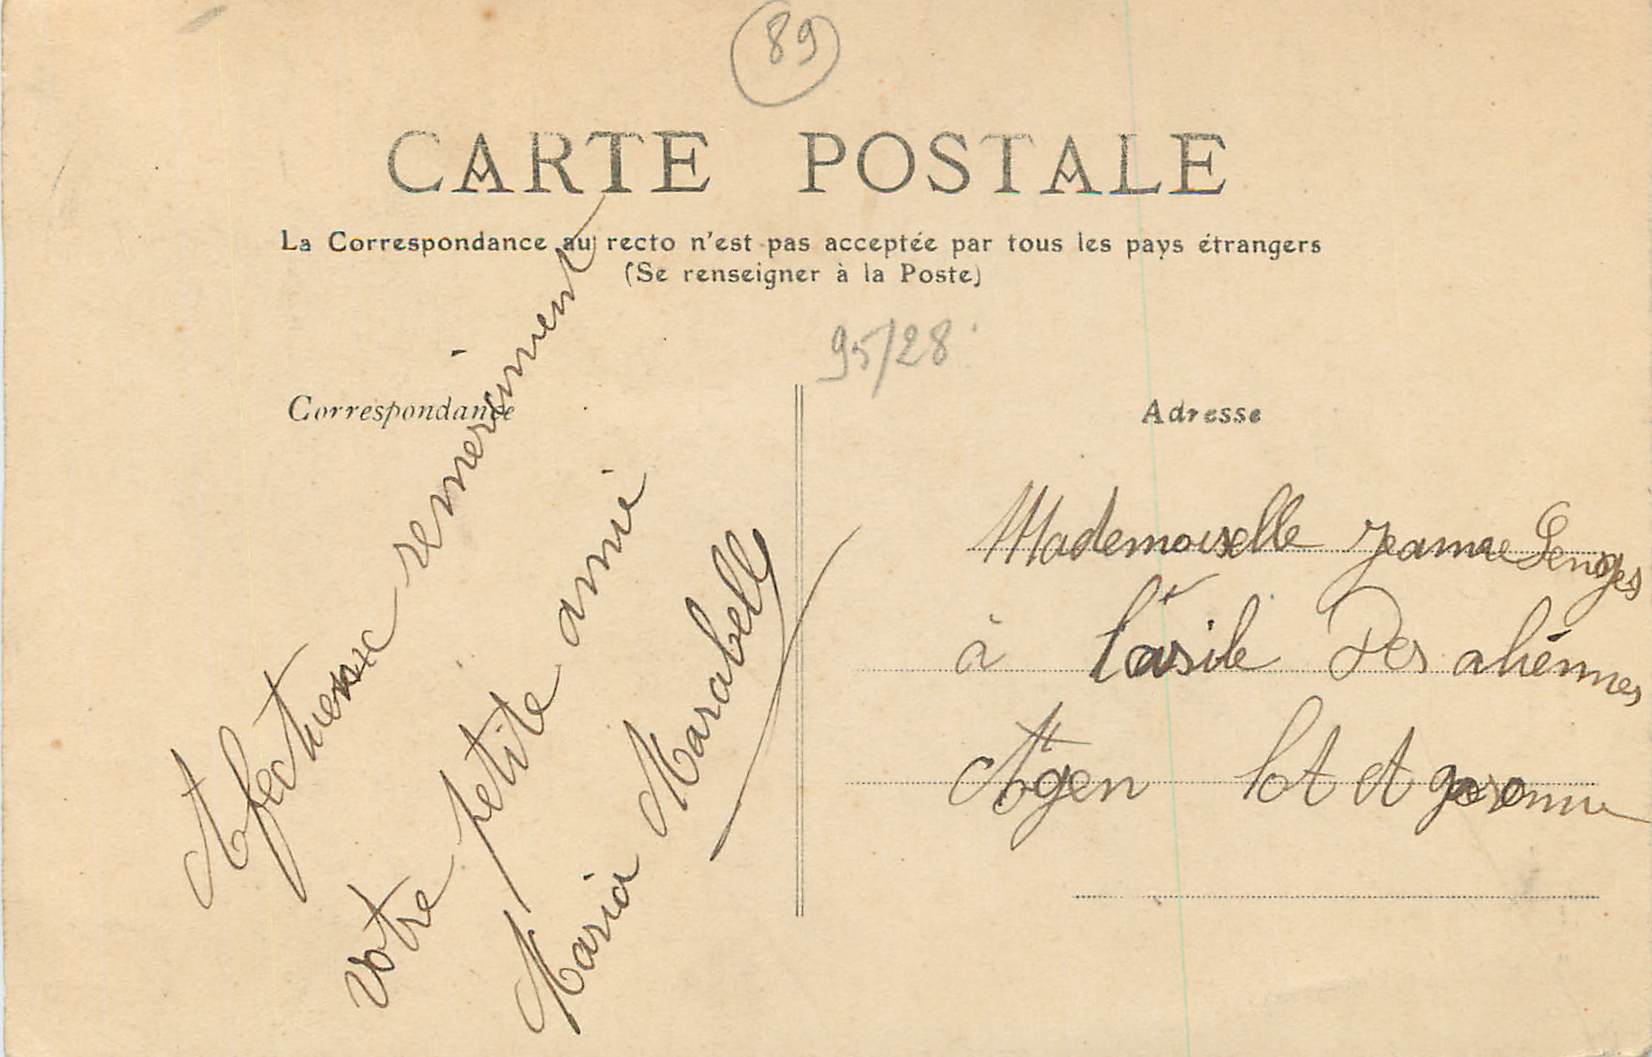 89
CARTE POSTALE
La Correspondance au recto n'est pas acceptée par tous les pays étrangers
(Se renseigner à la Poste)
95/28
Correspondance
Afectueux remerciment
votre petite amie
Maria Marabelle
Adresse
Mademoiselle Jeanne
à l'asile Des aliénnes
Agen Lot et garonne